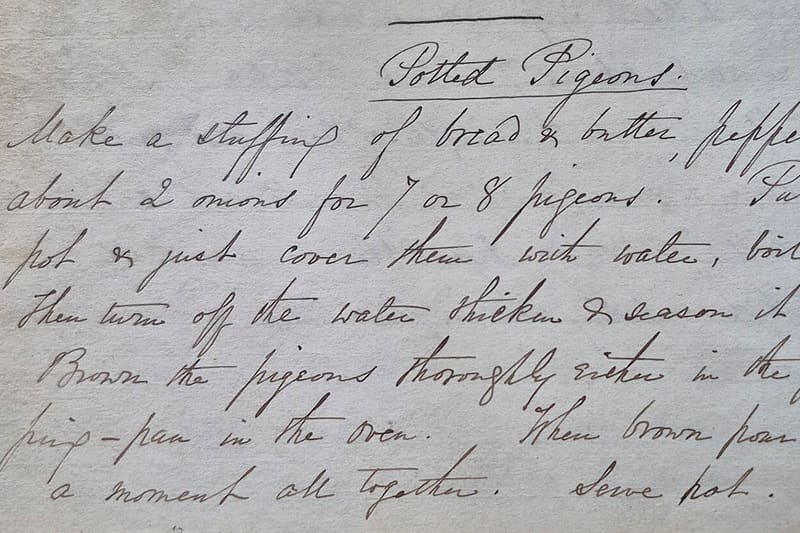 Potted Pigeons.
Make a stuffing of bread & butter, peppe
about 2 onions for 7 or 8 pigeons. Pu
pot & just cover them with water, boil
then turn off the water thicken & season it
Brown the pigeons thoroughly either in the
ing-pan in the oven. When brown pour
a moment all together. Serve hot.